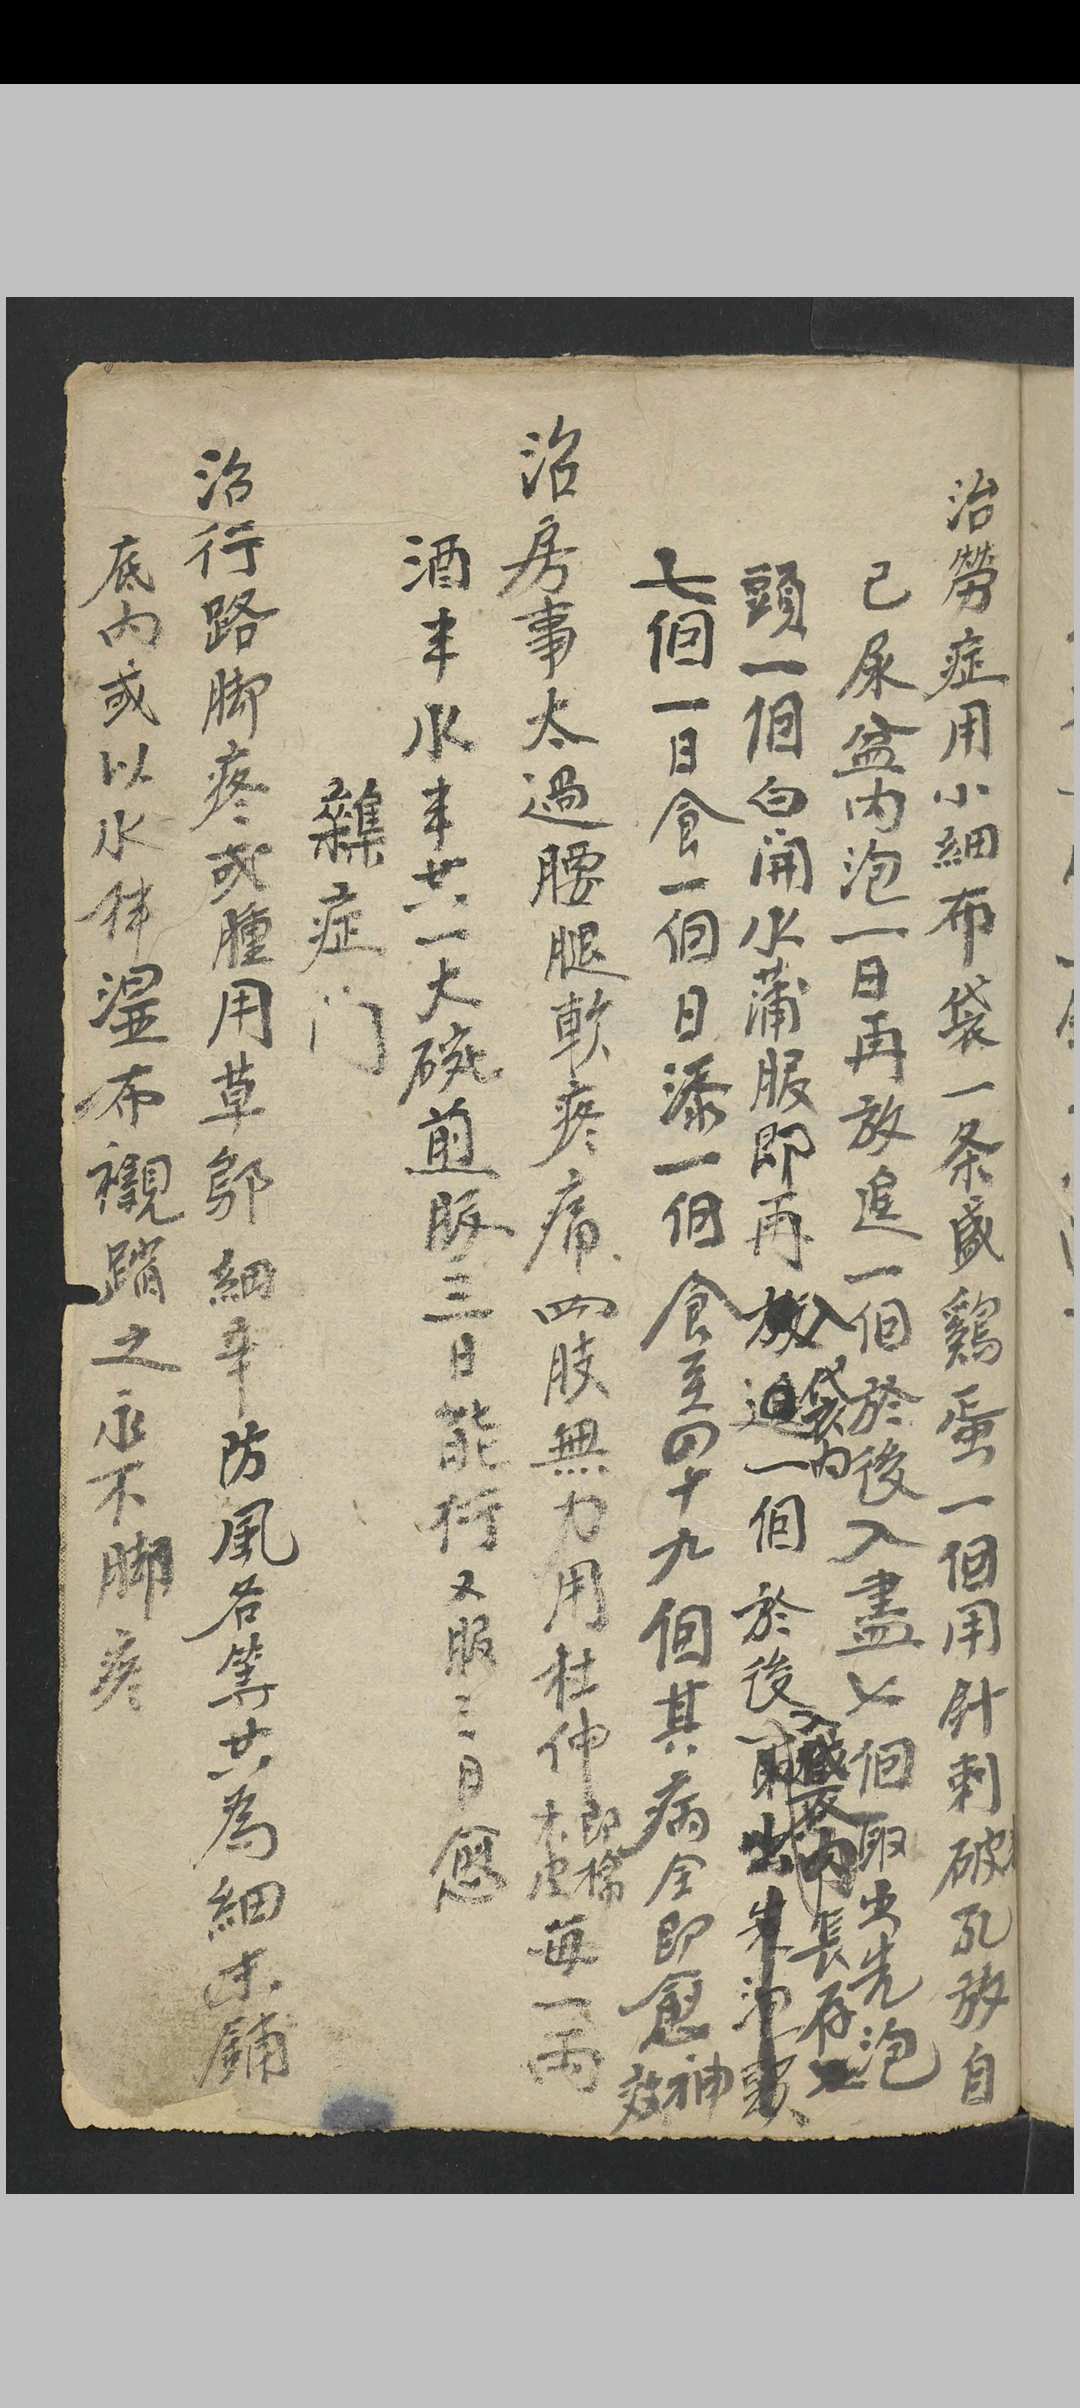 治勞症用小細布袋一条盛鷄蛋一個用針刺破孔放自
己尿盆内泡一日再放進一個於後入盡七個取出先泡
入袋内
内長存
頭一個白開水蒲服即再放進一個於後
七個一日食一個日添一個食至四十九個其病全即愈神效
治房事太過腰腿軟疼痛四肢無力用杜仲即棉木皮每一兩
酒半水半共一大碗煎服三日能行又服三日愈
雜症门
治行路脚疼或腫用草鄔細辛防風各等共為細末鋪
底内或以水伴濕布襯踏之永不脚疼